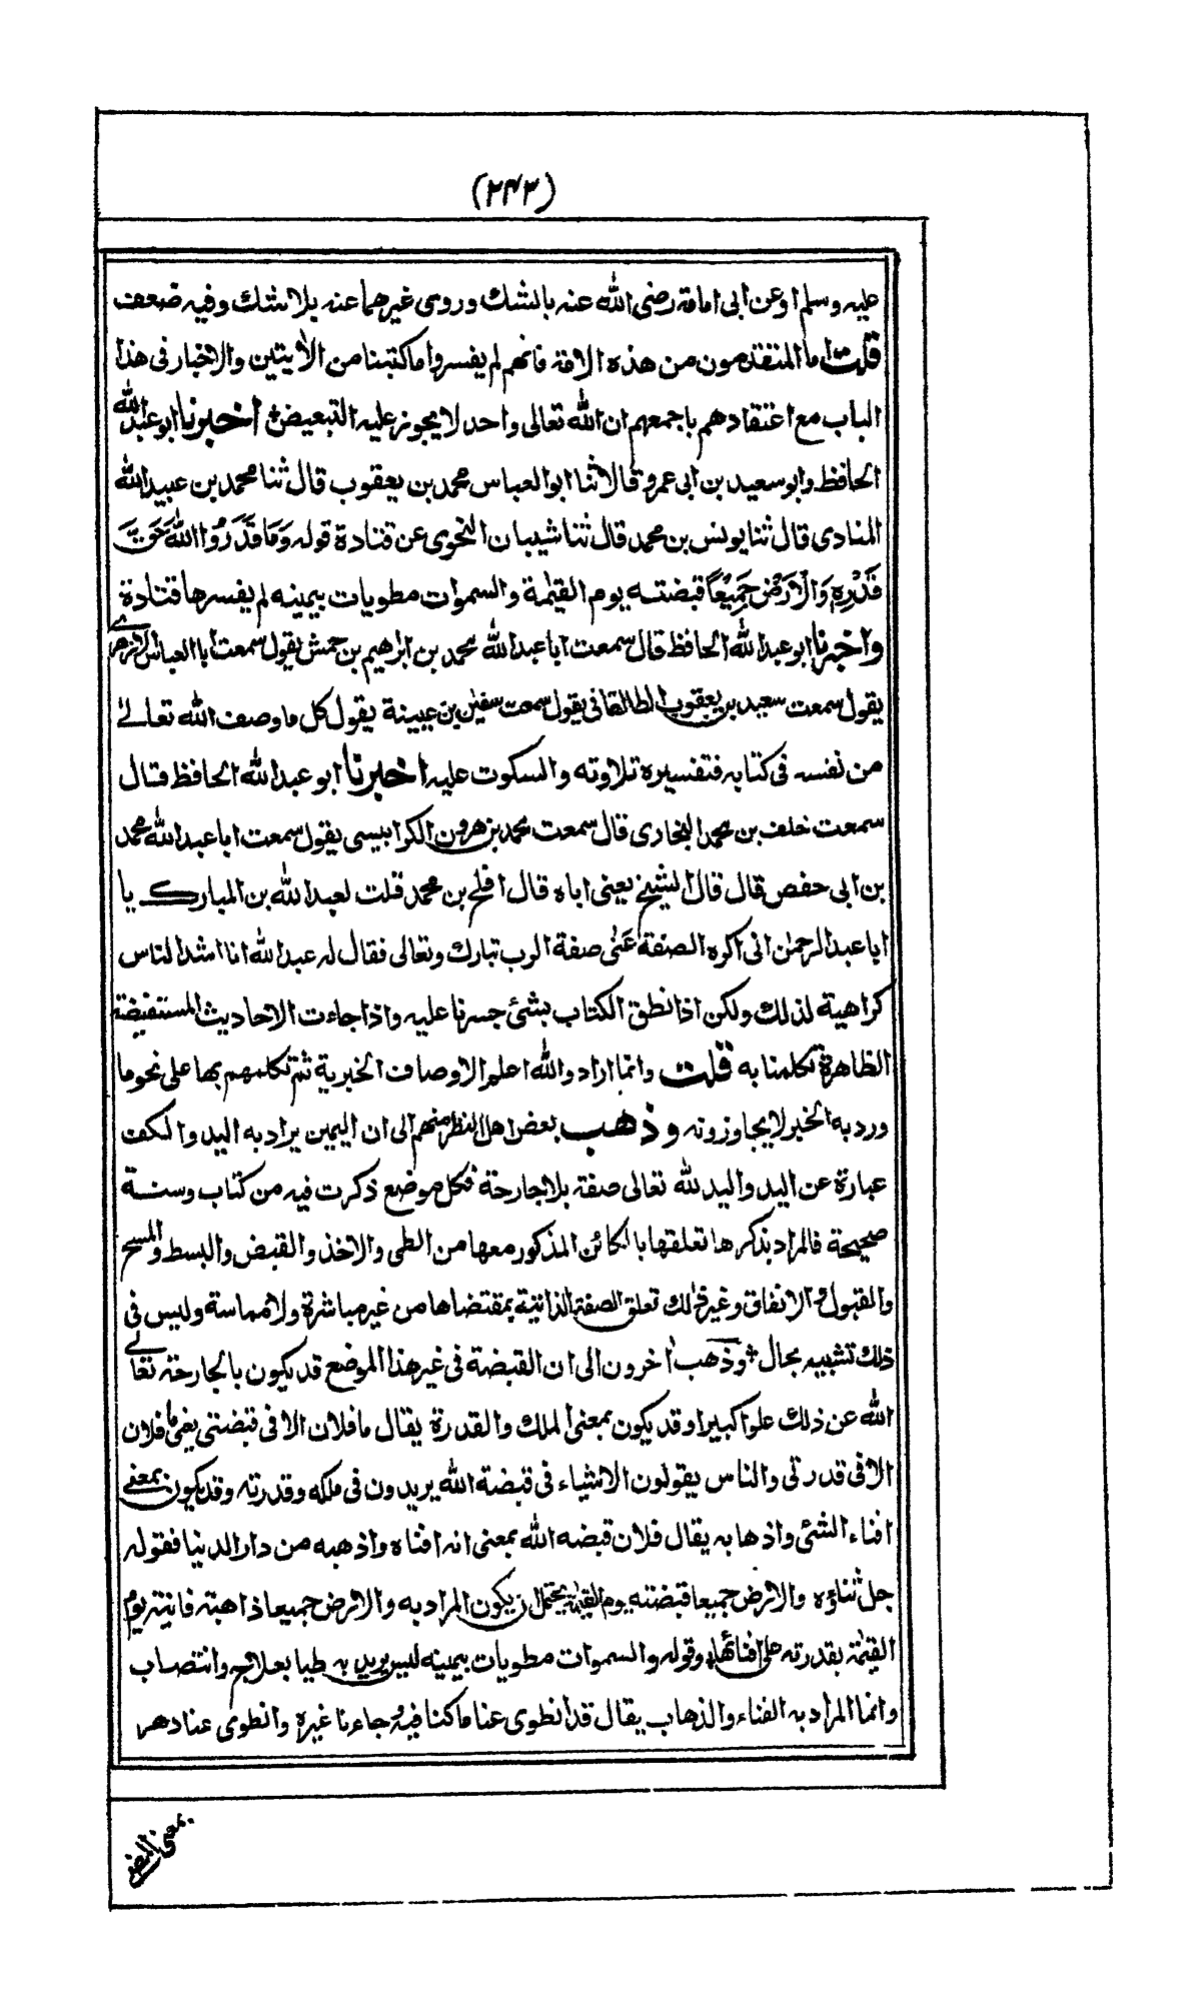 (٢٤٢)
عليه وسلم اوعن ابى امامة رضى الله عنه بالشك وروى غيرهما عنه بلا شك وفيه ضعف
قلت اما المتقدمون من هذه الامة فانهم لم يفسروا ما كتبنا من الآيتين والاخبار فى هذا
الباب مع اعتقادهم باجمعهم ان الله تعالى واحد لا يجوز عليه التبعيض اخبرنا ابو عبد الله
الحافظ وابو سعيد بن ابى عمرو قالا ثنا ابو العباس محمد بن يعقوب قال ثنا محمد بن عبيد الله
المنادى قال ثنا يونس بن محمد قال ثنا شيبان النحوى عن قتادة قوله وَمَا قَدَرُوا اللهَ حَقَّ
قَدْرِهٖ وَالْاَرْضُ جَمِيْعًا قبضته يوم القيمة والسموات مطويات بيمينه لم يفسرها قتادة
واخبرنا ابو عبد الله الحافظ قال سمعت ابا عبد الله محمد بن ابرهيم بن حمش يقول سمعت ابا العباس الازهرى
يقول سمعت سعيد بن يعقوب الطالقانى يقول سمعت سفين بن عيينة يقول كل ما وصف الله تعالى
من نفسه فى كتابه فتفسيره تلاوته والسكوت عليه اخبرنا ابو عبد الله الحافظ قال
سمعت خلف بن محمد البخارى قال سمعت محمد بن هرون الكرابيسى يقول سمعت ابا عبد الله محمد
بن ابى حفص قال قال الشيخ يعنى اباه قال افلح بن محمد قلت لعبد الله بن المبارك يا
ابا عبد الرحمن انى اكره الصفة عَنٰى صفة الرب تبارك وتعالى فقال له عبد الله انا اشد الناس
كراهية لذلك ولكن اذا نطق الكتاب بشئ جسرنا عليه واذا جاءت الاحاديث المستفيضة
الظاهرة تكلمنا به قلت وانما اراد والله اعلم الاوصاف الخبرية ثم تكلمهم بها على نحو ما
ورد به الخبر لا يجاوزونه وذهب بعض اهل النظر منهم الى ان اليمين يراد به اليد والكف
عبارة عن اليد واليد لله تعالى صفة بلا جارحة فكل موضع ذكرت فيه من كتاب وسنة
صحيحة فالمراد بذكرها تعلقها بالكائن المذكور معها من الطى والاخذ والقبض والبسط والمسح
والقبول والانفاق وغير ذلك تعلق الصفة الذاتية بمقتضاها من غير مباشرة ولا مماسة وليس فى
ذلك تشبيه بحال وذهب اخرون الى ان القبضة فى غير هذا الموضع قد يكون بالجارحة تعالى
الله عن ذلك علوا كبيرا وقد يكون بمعنى الملك والقدرة يقال ما فلان الا فى قبضتى يعنى ما فلان
الا فى قدرتى والناس يقولون الاشياء فى قبضة الله يريدون فى ملكه وقدرته وقد يكون بمعنى
افناء الشئ واذهابه يقال فلان قبضه الله بمعنى انه افناه واذهبه من دار الدنيا فقوله
جل ثناؤه والارض جميعا قبضته يوم القيمة يحتمل ان يكون المراد به والارض جميعا ذاهبة فانية يوم
القيمة بقدرته على افنائها وقوله والسموات مطويات بيمينه ليس يريد به طيا بعلاج وانتصاب
وانما المراد به الفناء والذهاب يقال قد انطوى عنا ما كنا فيه وجاءنا غيره وانطوى عنا دهر
بمعنى المضى